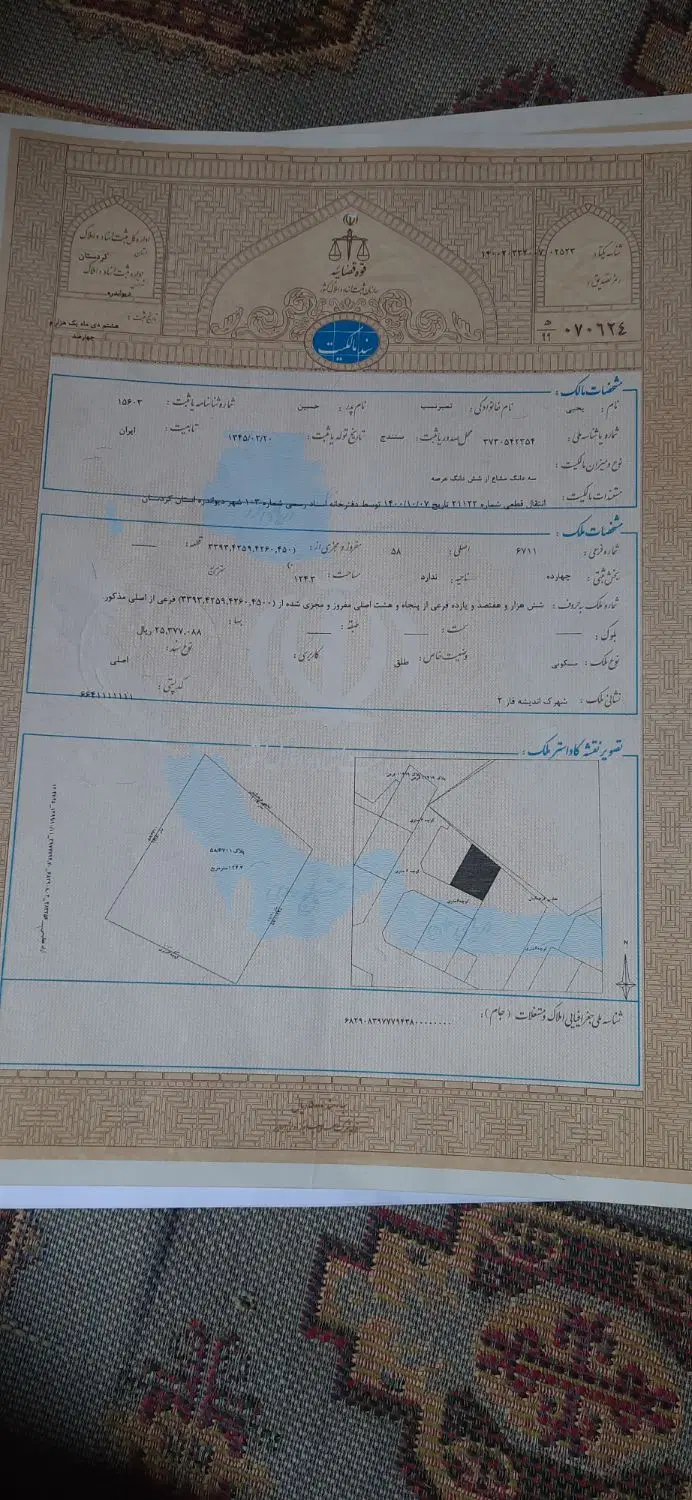 اداره کل ثبت اسناد و املاک
استان: کردستان
اداره ثبت اسناد و املاک
دیواندره
تاریخ ثبت: هشتم دی ماه یک هزار و
چهارصد
قوه قضائیه
سازمان ثبت اسناد و املاک کشور
سند مالکیت
شناسه یکتا:
رمز تصدیق:
۰۷۰۶۲۴ ه‍/۹۹
مشخصات مالک:
نام: یحیی نام خانوادگی: نام پدر: حسین شماره شناسنامه یا ثبت: ۱۵۶۰۳
شماره یا شناسه ملی: ۳۷۳۰۵۴۲۳۵۴ محل صدور یا ثبت: سنندج تاریخ تولد یا ثبت: ۱۳۴۵/۰۲/۲۰ تابعیت: ایران
نوع و میزان مالکیت: سه دانگ مشاع از شش دانگ عرصه
مستندات مالکیت: انتقال قطعی شماره ۲۱۱۲۲ تاریخ ۱۴۰۰/۱۰/۰۷ توسط دفترخانه اسناد رسمی شماره ۱۰۳ شهر دیواندره استان کردستان
مشخصات ملک:
شماره فرعی: ۶۷۱۱ اصلی: ۵۸ مفروز و مجزی از: (۳۳۹۳,۴۲۵۹,۴۲۶۰,۴۵۰۰) قطعه:
بخش ثبتی: چهارده ناحیه: ندارد مساحت: ۱۲۴.۳ مترمربع
شماره ملک به حروف: شش هزار و هفتصد و یازده فرعی از پنجاه و هشت اصلی مفروز و مجزی شده از (۳۳۹۳,۴۲۵۹,۴۲۶۰,۴۵۰۰) فرعی از اصلی مذکور
بلوک: سمت: طبقه: بها: ۲۵,۳۷۷,۰۸۸ ریال
نوع ملک: مسکونی وضعیت خاص: طلق کاربری: نوع سند: اصلی
نشانی ملک: شهرک اندیشه فاز ۲ کد پستی: ۶۶۴۱۱۱۱۱۱۱
تصویر نقشه کاداستر ملک:
پلاک ۵۸/۶۷۱۱
۱۲۴.۳ مترمربع
N
شناسه ملی جغرافیایی املاک و مستغلات (جام):